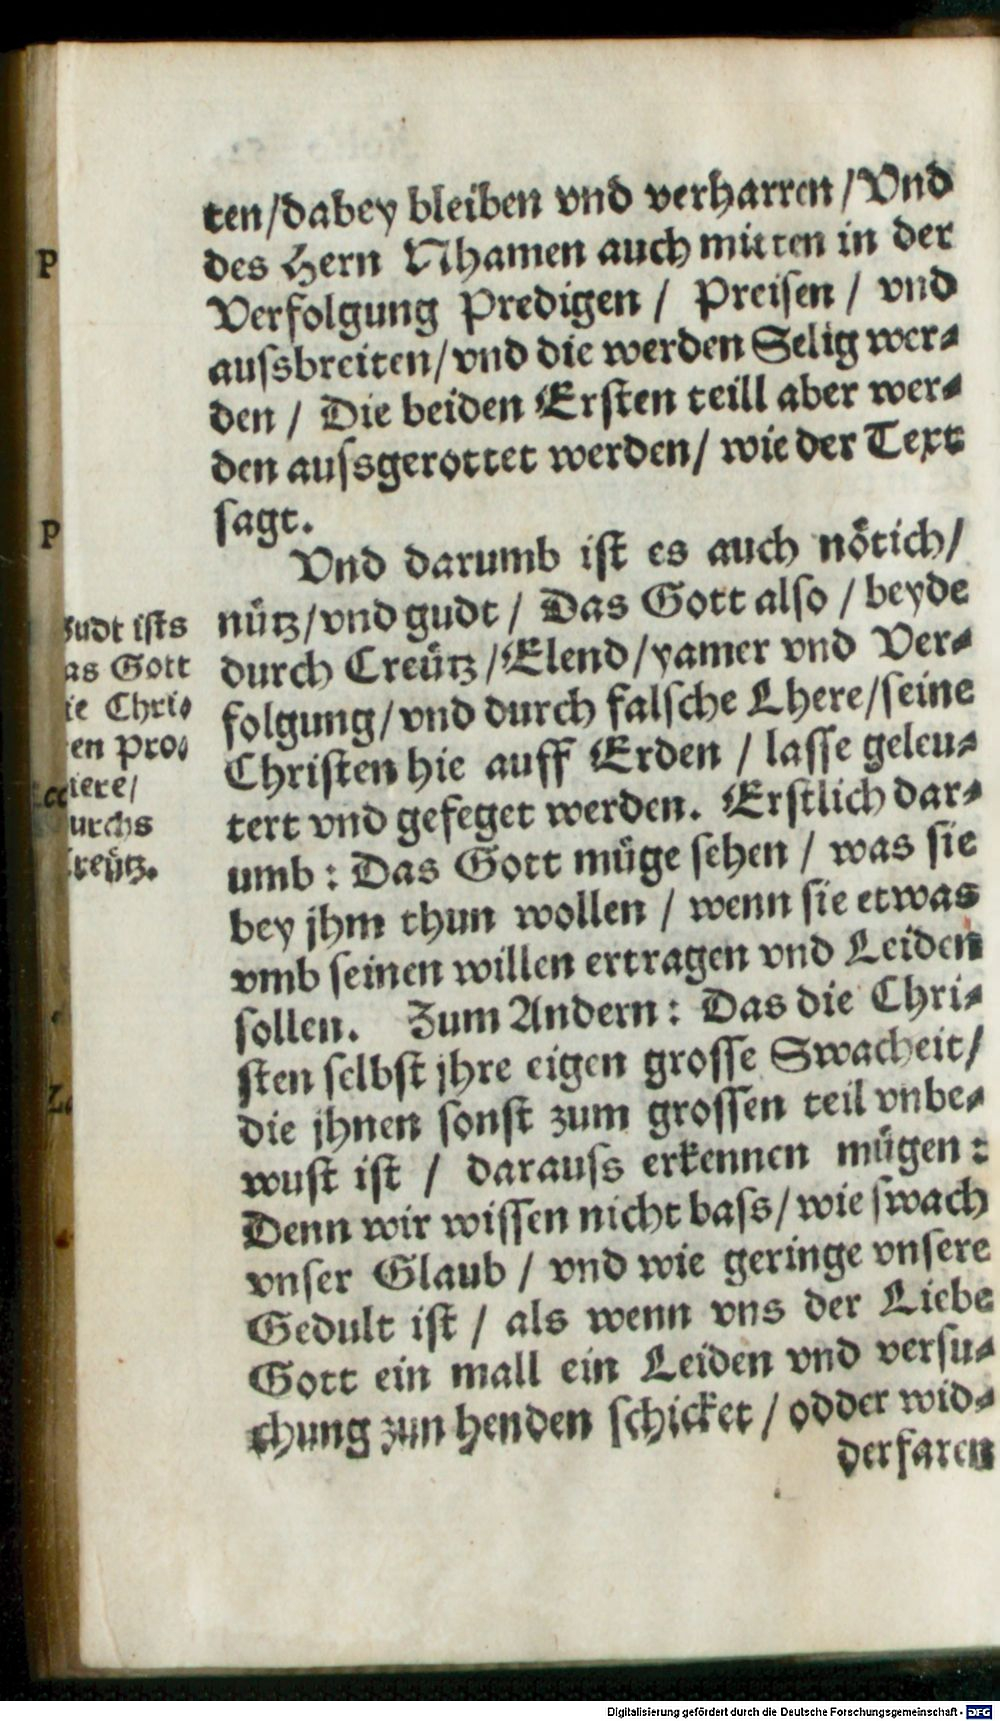 ten/dabey bleiben vnd verharren/Vnd
des Hern Nhamen auch mitten in der
Verfolgung Predigen / Preisen / vnd
aussbreiten/vnd die werden Selig wer-
den / Die beiden Ersten teill aber wer-
den aussgerottet werden/ wie der Text
sagt.
Vnd darumb ist es auch nötich/
nütz/vnd gudt / Das Gott also / beyde
durch Creütz/Elend/yamer vnd Ver-
folgung/vnd durch falsche Lhere/seine
Christen hie auff Erden / lasse geleu-
tert vnd gefeget werden. Erstlich dar-
umb : Das Gott müge sehen / was sie
bey jhm thun wollen / wenn sie etwas
vmb seinen willen ertragen vnd Leiden
sollen. Zum Andern : Das die Chri-
sten selbst jhre eigen grosse Swacheit/
die jhnen sonst zum grossen teil vnbe-
wust ist / darauss erkennen mügen :
Denn wir wissen nicht bass/wie swach
vnser Glaub / vnd wie geringe vnsere
Gedult ist / als wenn vns der Liebe
Gott ein mall ein Leiden vnd versu-
chung zun henden schicket / odder wid-
derfaren
gudt ists
as Gott
ie Chri-
en pro-
iere/
urchs
reütz.
P
P
Digitalisierung gefördert durch die Deutsche Forschungsgemeinschaft - DFG